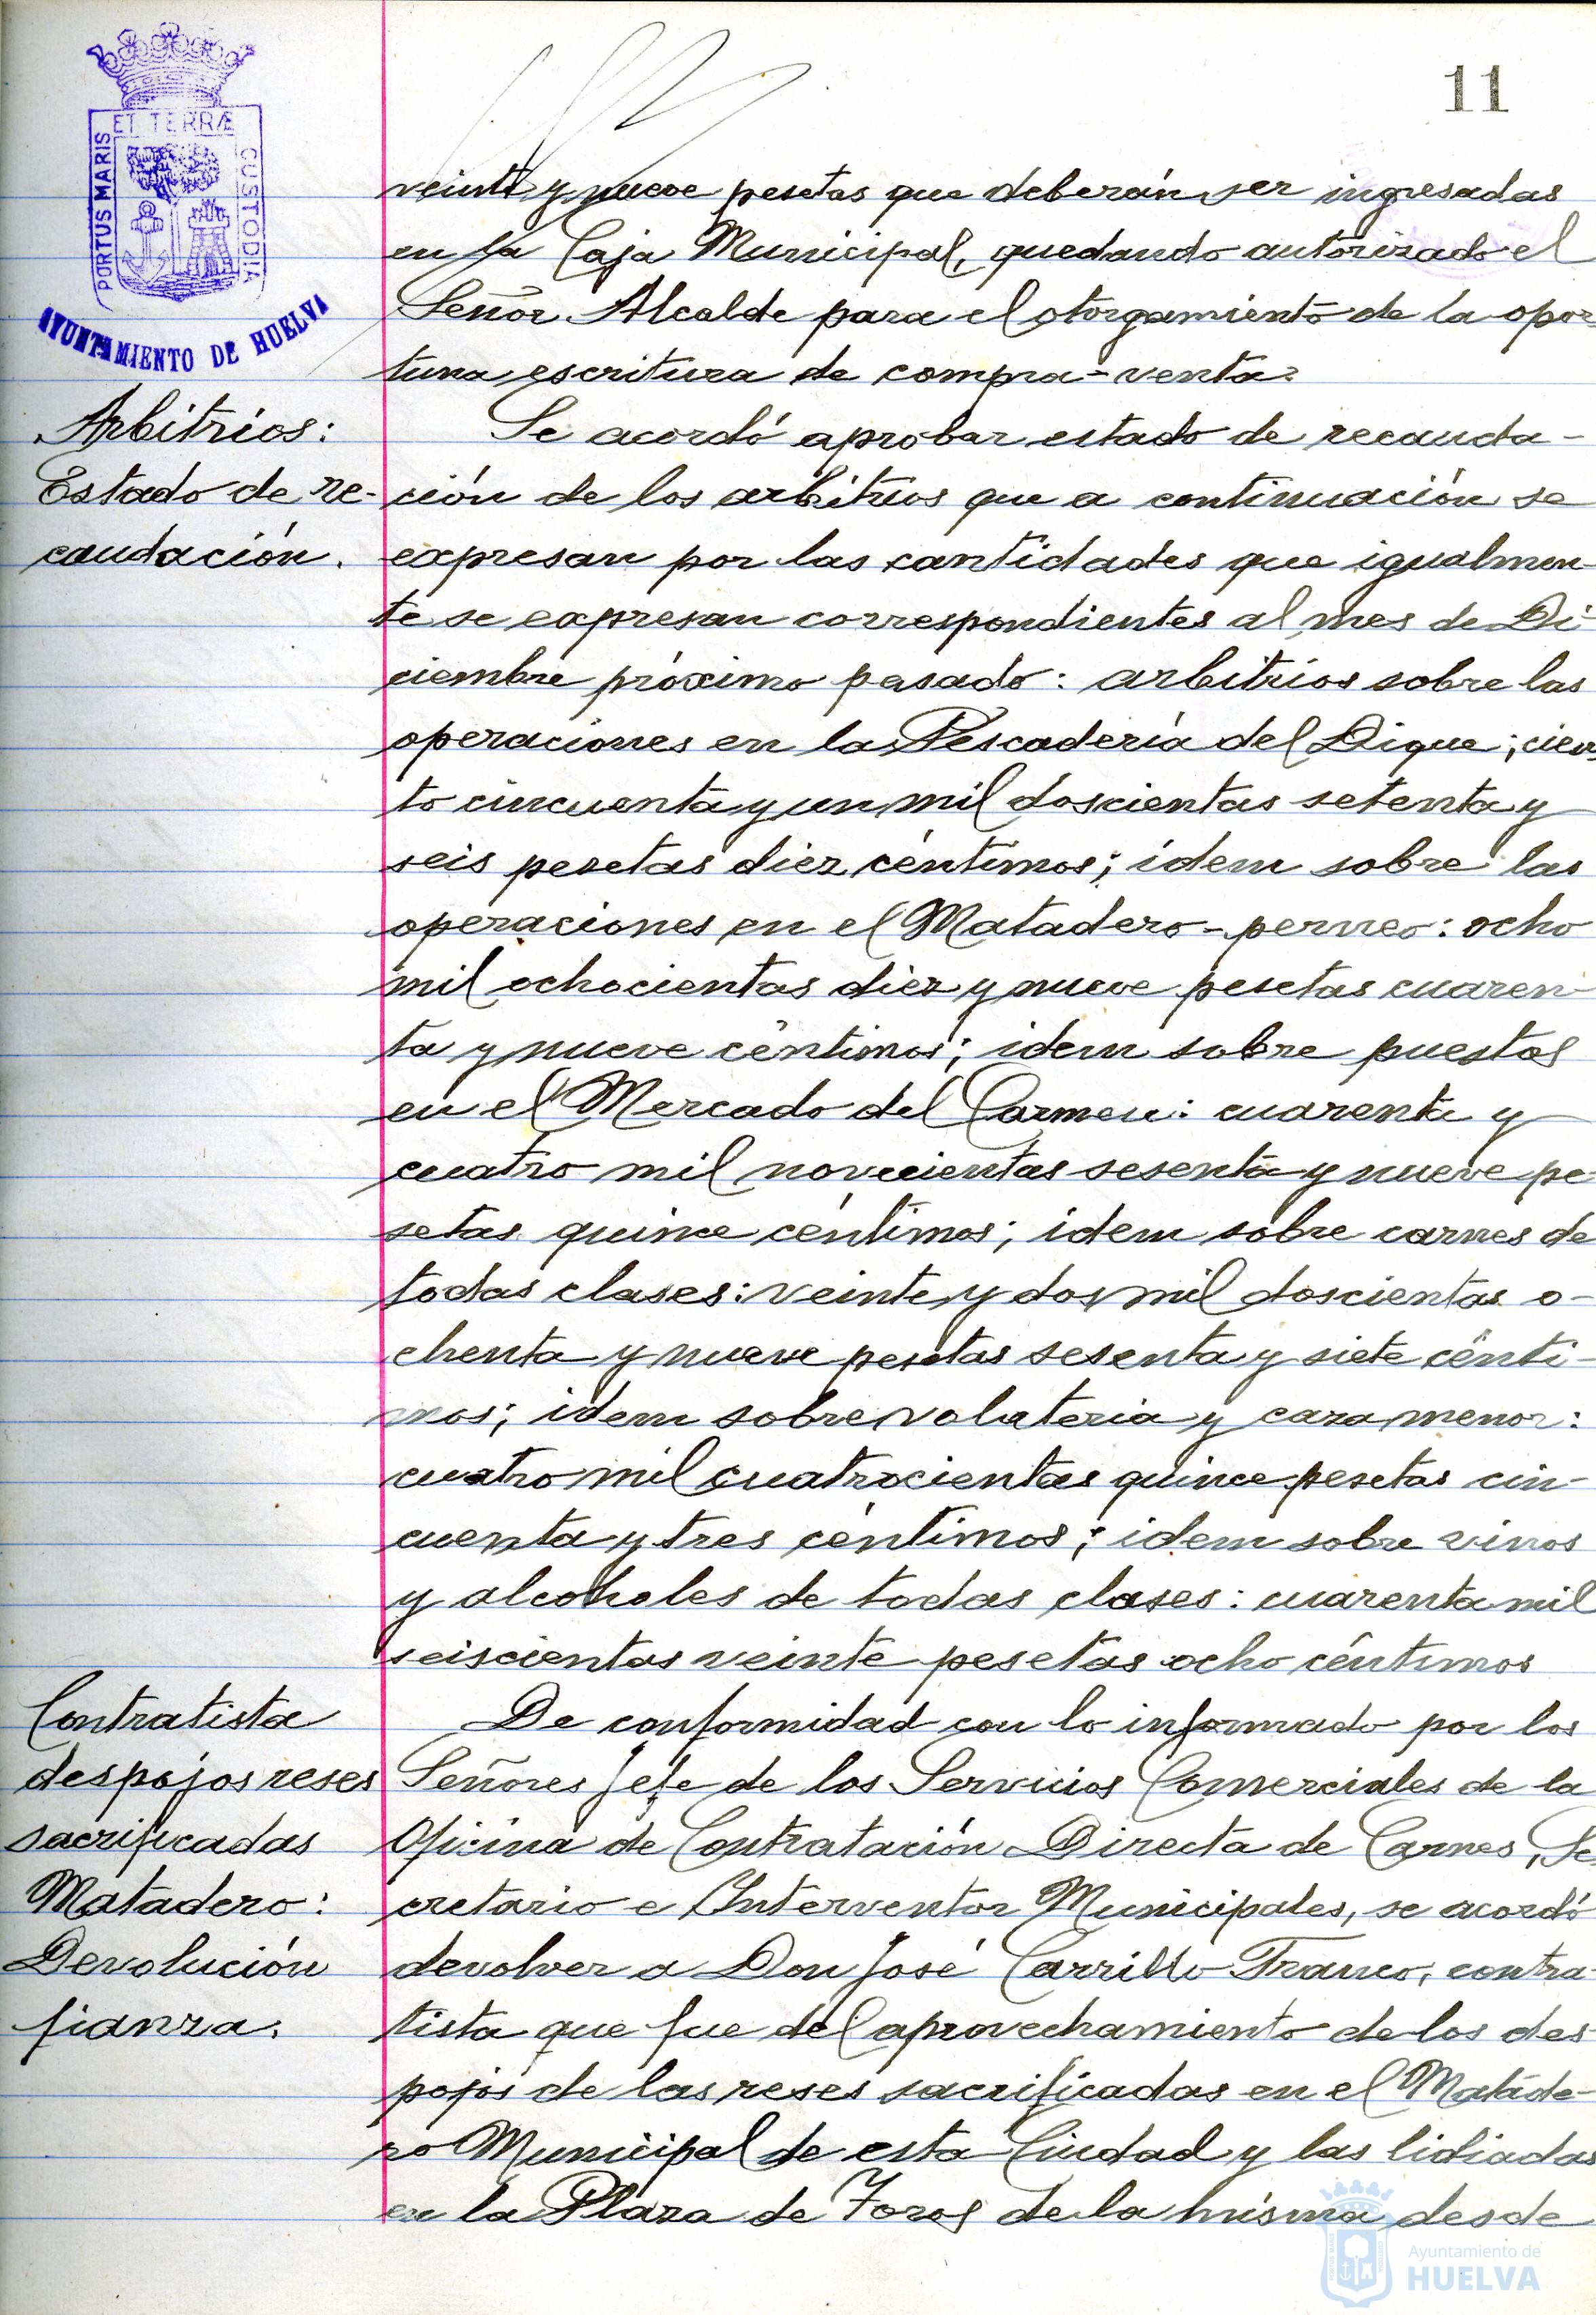 11
ET TERRÆ
PORTUS MARIS
CUSTODIA
AYUNTAMIENTO DE HUELVA
veinte y nueve pesetas que deberán ser ingresadas
en la Caja Municipal, quedando autorizado el
Señor Alcalde para el otorgamiento de la opor
tuna escritura de compra-venta.
Arbitrios:
Estado de re-
caudación.
Se acordó aprobar estado de recauda-
ción de los arbitrios que a continuación se
expresan por las cantidades que igualmen-
te se expresan correspondientes al mes de Di-
ciembre próximo pasado: arbitrios sobre las
operaciones en la Pescadería del Dique; cien
to cincuenta y un mil doscientas setenta y
seis pesetas diez céntimos; idem sobre las
operaciones en el Matadero-perneo: ocho
mil ochocientas diez y nueve pesetas cuaren-
ta y nueve céntimos; idem sobre puestos
en el Mercado del Carmen: cuarenta y
cuatro mil novecientas sesenta y nueve pe-
setas quince céntimos; idem sobre carnes de
todas clases: veinte y dos mil doscientas o-
chenta y nueve pesetas sesenta y siete cénti-
mos; idem sobre volateria y caza menor:
cuatro mil cuatrocientas quince pesetas cin-
cuenta y tres céntimos; idem sobre vinos
y alcoholes de todas clases: cuarenta mil
seiscientas veinte pesetas ocho céntimos
Contratista
despojos reses
sacrificadas
Matadero:
Devolución
fianza.
De conformidad con lo informado por los
Señores Jefe de los Servicios Comerciales de la
Oficina de Contratación Directa de Carnes, Se
cretario e Interventor Municipales, se acordó
devolver a Don José Carrillo Franco, contra-
tista que fue del aprovechamiento de los des-
pojos de las reses sacrificadas en el Matade-
ro Municipal de esta Ciudad y las lidiadas
en la Plaza de Toros de la misma desde
Ayuntamiento de
HUELVA